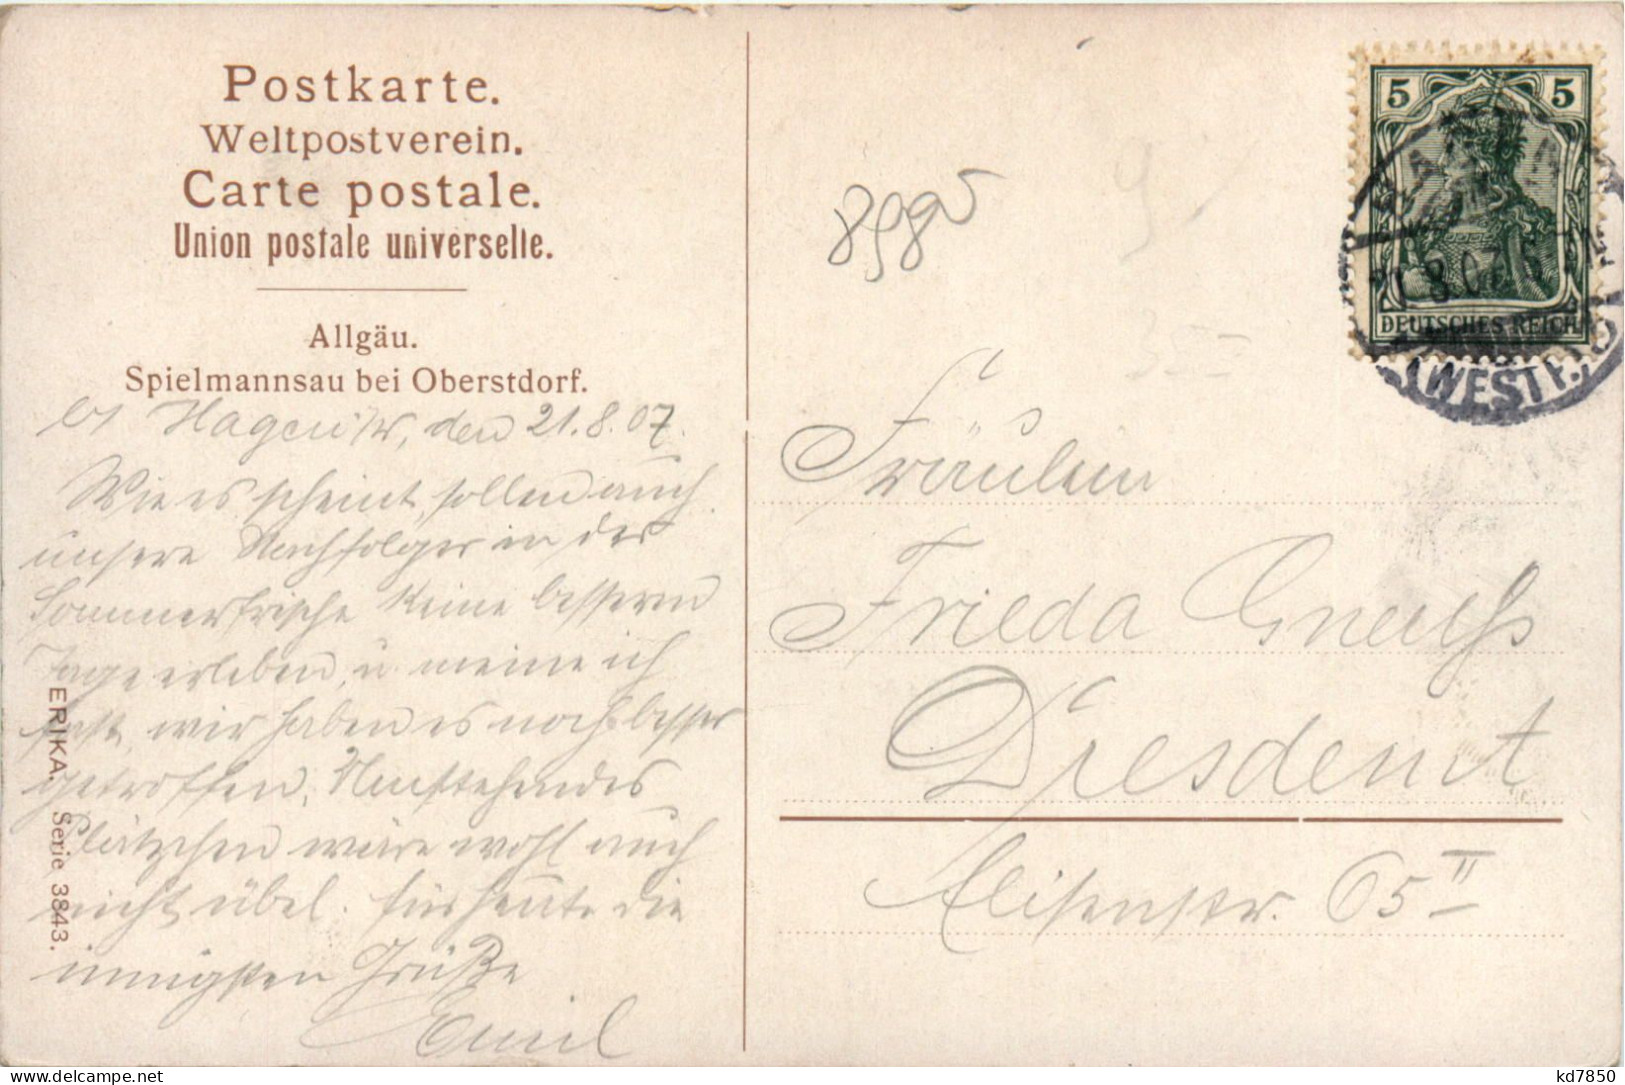 Postkarte.
Weltpostverein.
Carte postale.
Union postale universelle.
Allgäu.
Spielmannsau bei Oberstdorf.
Hagen i/W, den 21.8.07.
Wie es scheint, sollen auch
unsere Nachfolger in der
Sommerfrische keine besseren
Tage erleben, u. meine ich
fast, wir haben es noch besser
getroffen. Umstehendes
Plätzchen wäre wohl auch
nicht übel. Für heute die
innigsten Grüße
Emil
ERIKA. Serie 3843.
8985
5 5
DEUTSCHES REICH
HAGEN
8.07
(WESTF.)
Fräulein
Frieda
Dresden A
65 II
kd7850